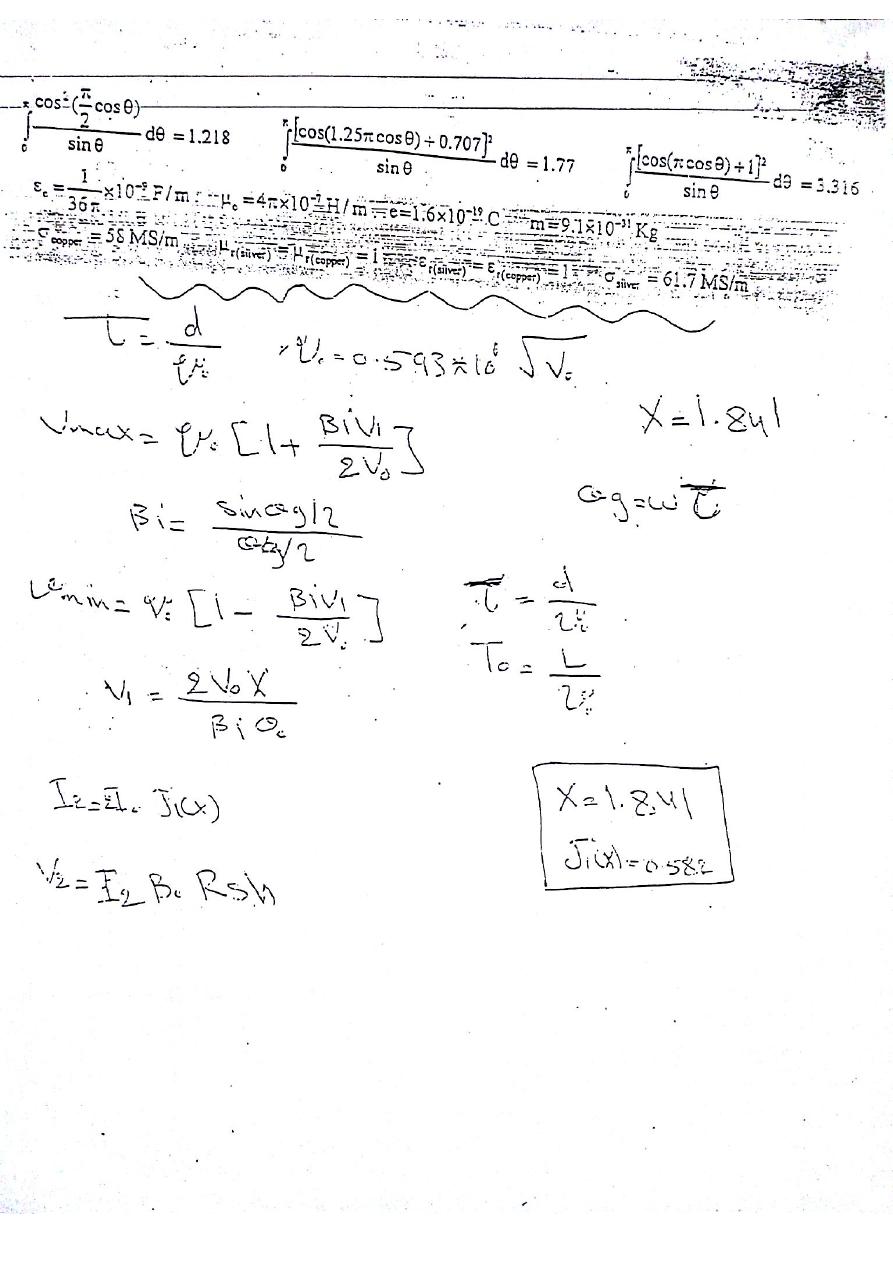 ∫₀^π cos²(π/2 cosθ) / sinθ dθ = 1.218    ∫₀^π [cos(1.25π cosθ) + 0.707]² / sinθ dθ = 1.77    ∫₀^π [cos(π cosθ) + 1]² / sinθ dθ = 3.316
ε₀ = 1/36π ×10⁻⁹ F/m    μ₀ = 4π×10⁻⁷ H/m    e = 1.6×10⁻¹⁹ C    m = 9.1×10⁻³¹ Kg
σ copper = 58 MS/m    μ r(silver) = μ r(copper) = 1    ε r(silver) = ε r(copper) = 1    σ silver = 61.7 MS/m
τ = d / v₀    v₀ = 0.593 * 10⁶ √V₀
Vmax = v₀ [1 + BiV₁ / 2V₀]    X = 1.841
Bi = sin θg/2 / θg/2    θg = ω τ
vmin = v₀ [1 − BiV₁ / 2V₀]    τ = d / v₀
T₀ = L / v₀
V₁ = 2V₀X / Bi θ₀
I₂ = 2I₀ J₁(X)    X = 1.841
J₁(X) = 0.582
V₂ = I₂ B₀ Rsh